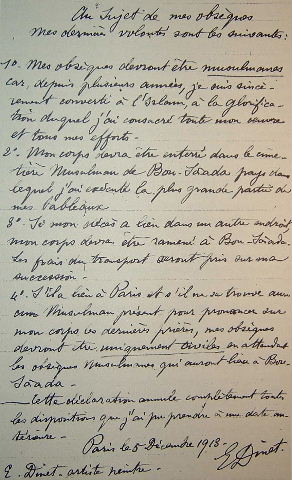 Au Sujet de mes obsèques
Mes dernières volontés sont les suivantes:
1°. Mes obsèques devront être musulmanes
car, depuis plusieurs années, je suis sincè-
rement converti à l'Islam, à la glorifica-
tion duquel j'ai consacré toute mon œuvre
et tous mes efforts.
2°. Mon corps devra être enterré dans le cime-
tière Musulman de Bou-Sâada pays dans
lequel j'ai exécuté la plus grande partie de
mes tableaux
3°. Si mon décès a lieu dans un autre endroit,
mon corps devra être ramené à Bou-Sâada.
Les frais du transport seront pris sur ma
succession.
4°. S'il a lieu à Paris et s'il ne se trouve au
cun Musulman présent pour prononcer sur
mon corps les dernières prières, mes obsèques
devront être uniquement civiles en attendant
les obsèques Musulmanes qui auront lieu à Bou-
Sâada.
Cette déclaration annule complètement toutes
les dispositions que j'ai pu prendre à une date an-
térieure.
Paris le 5 Décembre 1913.
E. Dinet
E. Dinet - artiste peintre.